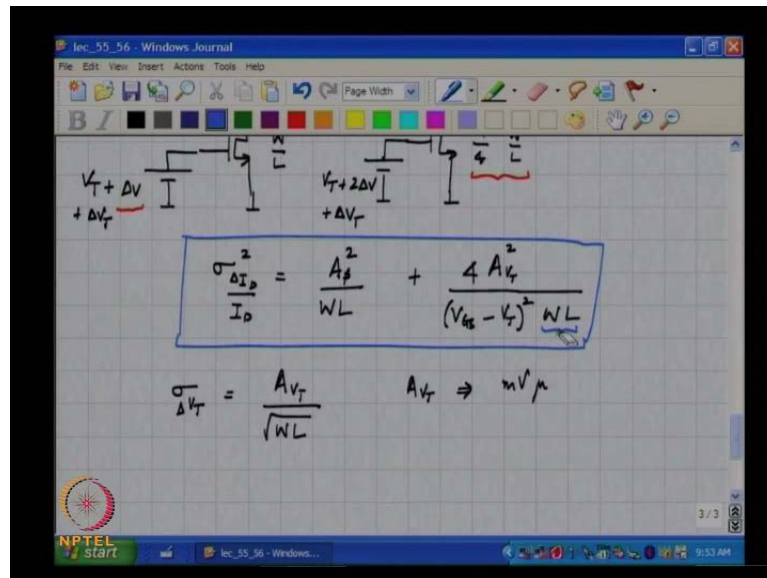 lec_55_56 - Windows Journal
File Edit View Insert Actions Tools Help
Page Width
B I
W
L
W
L
4
V_T + ΔV
+ ΔV_T
V_T + 2ΔV
+ ΔV_T
σ²_{ΔI_D/I_D} = A_β²/WL + 4 A_{V_T}²/(V_GS - V_T)² WL
σ_{ΔV_T} = A_{V_T}/√WL A_{V_T} ⇒ mV μ
3/3
NPTEL
start
lec_55_56 - Windows...
9:53 AM